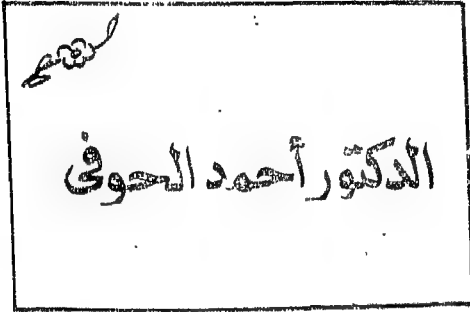 الدكتور أحمد الحوفى